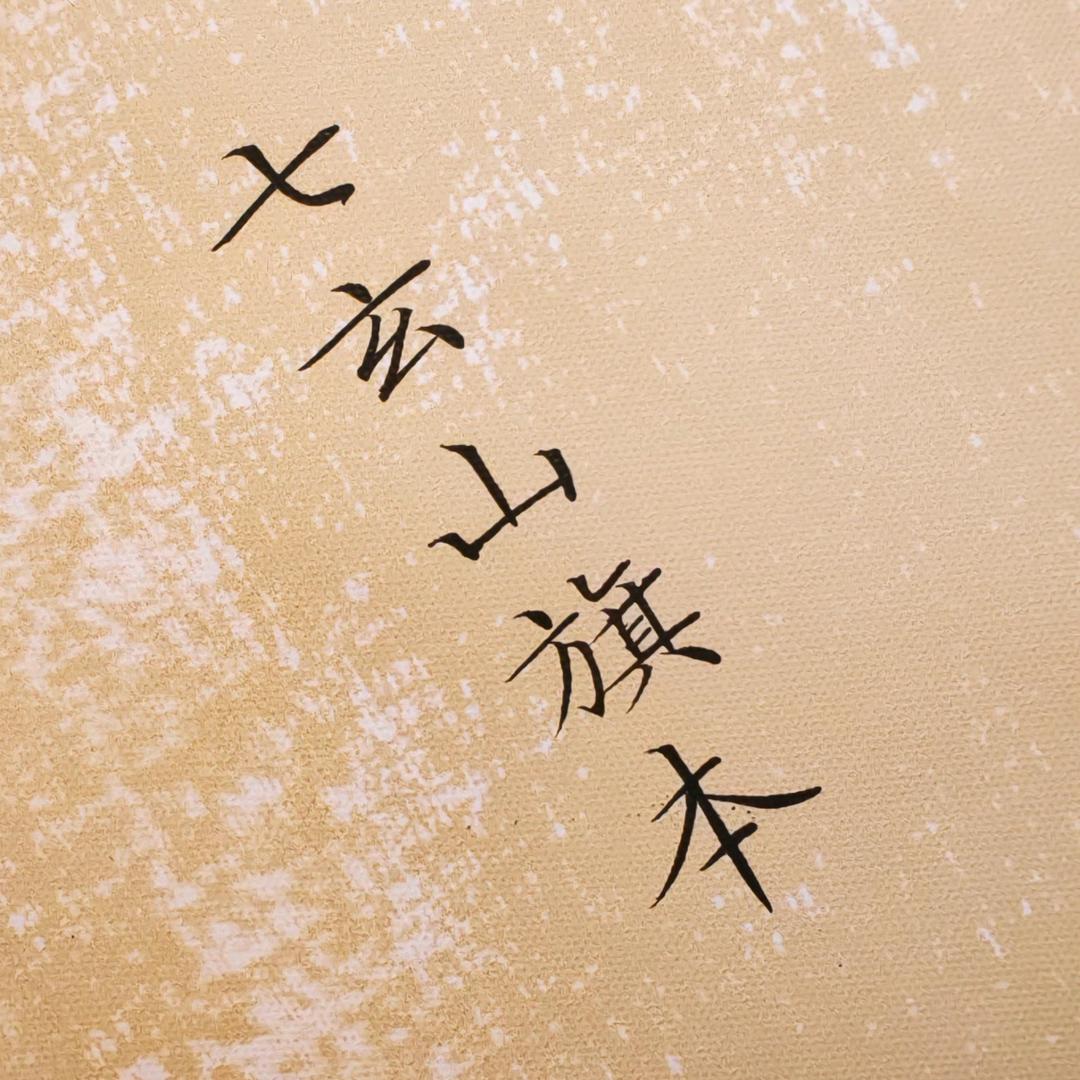 七玄山旗本